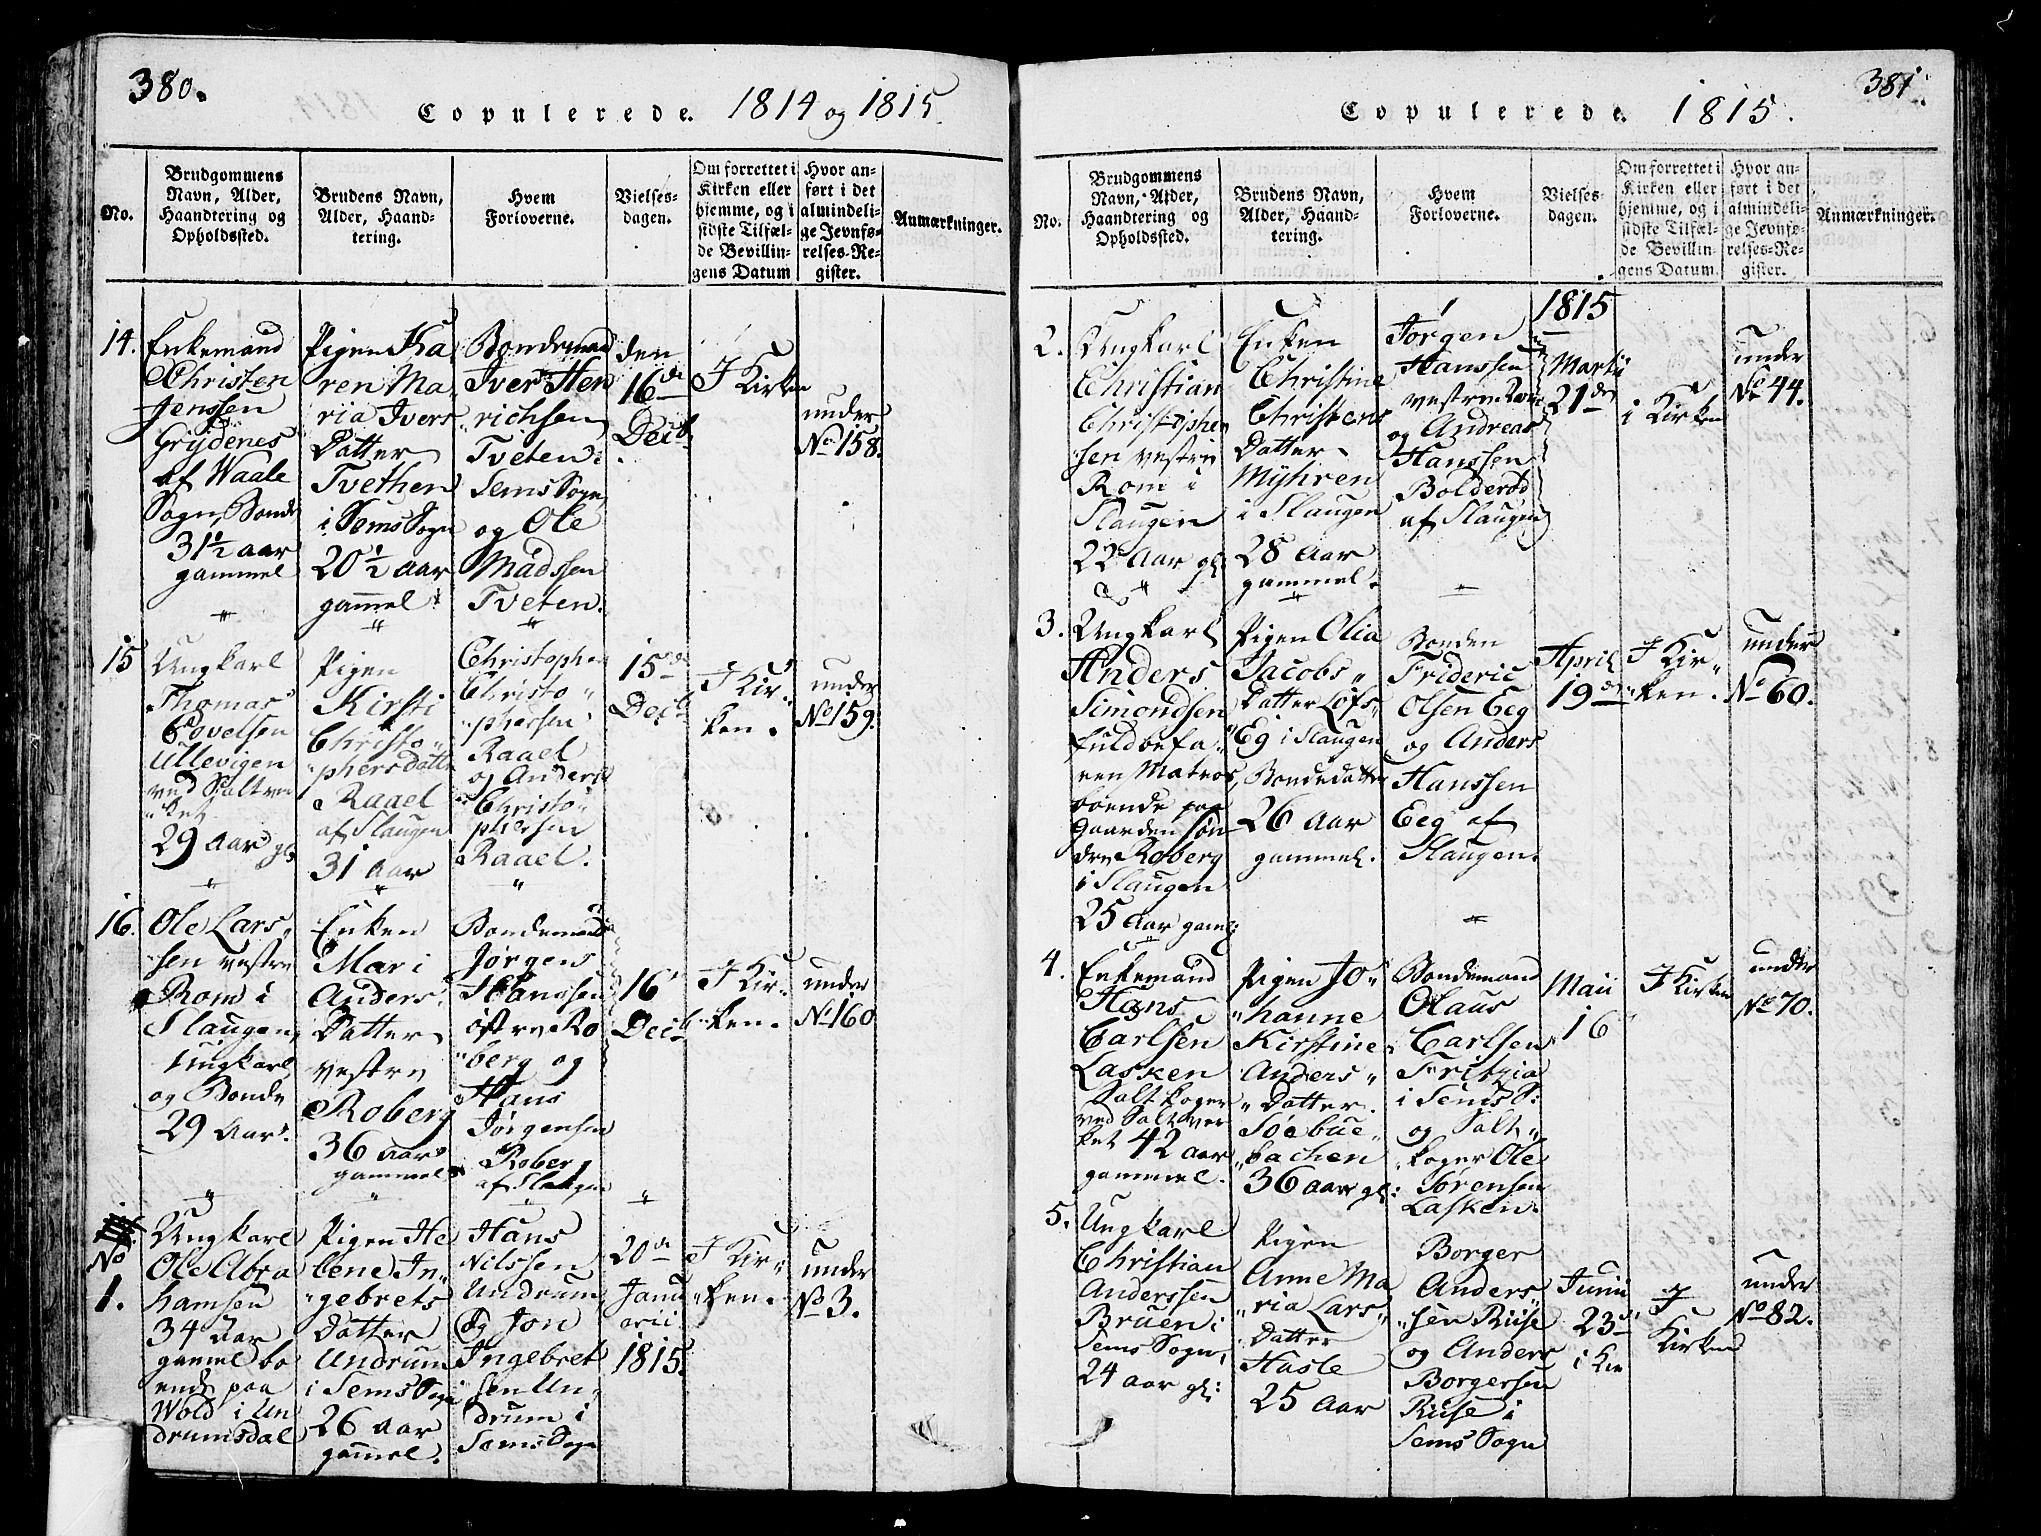 380.
Copulerede. 1814 og 1815.
No.
Brudgommens
Navn, Alder,
Haandtering og
Opholdssted.
Brudens Navn,
Alder, Haand-
tering.
Hvem
Forloverne.
Vielses-
dagen.
Om forrettet i
Kirken eller
hjemme, og i
sidste Tilfæl-
de Bevillin-
gens Datum
Hvor an-
ført i det
almindeli-
ge Jevnfø-
relses-Re-
gister.
Anmærkninger.
14.
Enkemand
Christen
Jenssen
Grydenes
af Waale
Sogn, Bonde
31 1/2 aar
gammel
Pigen Ka
ren Ma
ria Ivers
Datter
Tvethen
i Sems Sogn
20 1/2 aar
gammel
Bondemand
Iver Hen
richsen
Tveten
Sems Sogn
og Ole
Madssen
Tveten.
den
16de
Decb.
I Kirken
under
No 158.
15
Ungkarl
Thomas
Ullevigen
ved Saltver
ket
29 Aar gl.
Pigen
Kirsti
Christo„
„phersdatter
Raael
af Slaugen
31 Aar
Christopher
Christo„
„phersen
Raael
og Anders
Christo„
phersen
Raael.
15de
Decb.
I Kir„
ken.
under
No 159.
16.
Ole Lars„
sen vestre
Rom i
Slaugen,
Ungkarl
og Bonde
29 Aar.
Enken
Mari
Anders
Datter
vestre
Roberg
36 Aar
gammel
Bondemand
Jørgens
Hanssen
østre Ro
„berg og
Hans
Jørgensen
Roberg
af Slaugen
16
Decb.
I Kir„
„ken.
under
No 160
No
1.
Ungkarl
Ole Abra
hamsen
34 Aar
gammel bo
ende paa
Wold i Un
drumsdal
Pigen He
lene In„
„gebrets
Datter
Undrum
i Sems Sogn
26 Aar
gammel.
Hans
Nilssen
Undrum
Og Jon
Ingebret
sen Un„
drum i
Sems Sogn
20de
Janu
arii
1815.
I Kir„
„ken.
under
No 3.
381.
Copulerede. 1815.
No.
Brudgommens
Navn, Alder,
Haandtering og
Opholdssted.
Brudens Navn,
Alder, Haand-
tering.
Hvem
Forloverne.
Vielses-
dagen.
Om forrettet i
Kirken eller
hjemme, og i
sidste Tilfæl-
de Bevillin-
gens Datum.
Hvor an-
ført i det
almindeli-
ge Jevnfø-
relses-Re-
gister.
Anmærkninger.
2.
Ungkarl
Christian
Christophe
sen vestre
Rom i
Slaugen
22 Aar gl.
Enken
Christine
Christens
Datter
Myhren
i Slaugen
28 Aar
gammel.
Jørgen
Hanssen
vestre
og Andreas
Hanssen
Bolderød
af Slaugen
1815
Martii
21de
i Kirken
under
No 44.
3.
Ungkarl
Anders
Simondsen
fuldbefa„
ren Matros,
boende paa
Gaarden Søn
dre Roberg
i Slaugen
25 Aar gaml
Pigen Olia
Jacobs„
Datter Løfs„
Eg i Slaugen
Bondedatter
26 Aar
gammel.
Bonden
Frideric
Olsen Eeg
og Anders
Hanssen
Eeg af
Slaugen.
April
19de
I Kir„
ken.
under
No 60.
4.
Enkemand
Hans
Carlsen
Lasken
Saltkoger
ved Saltver
ket 42 Aar
gammel.
Pigen Jo„
„hanne
Kirstine
Anders„
„Datter.
Søebue„
„bachen
36 aar gl:
Bondemand
Olaus
Carlsen
Fritzia
i Sems S:
og Salt„
„koger Ole
Sørensen
Lasken.
Maii
16
I Kirken
under
No 70.
5.
Ungkarl
Christian
Anderssen
Bruen i
Sems Sogn,
24 aar gl:
Pigen
Anne Ma
„ria Lars„
Datter
Hasle
25 Aar
Borger
Anders„
„sen Riise
og Anders
Borgersen
Riise i
Sems Sogn
Junii
23de
i Kir
I
Kirken
under
No 82.